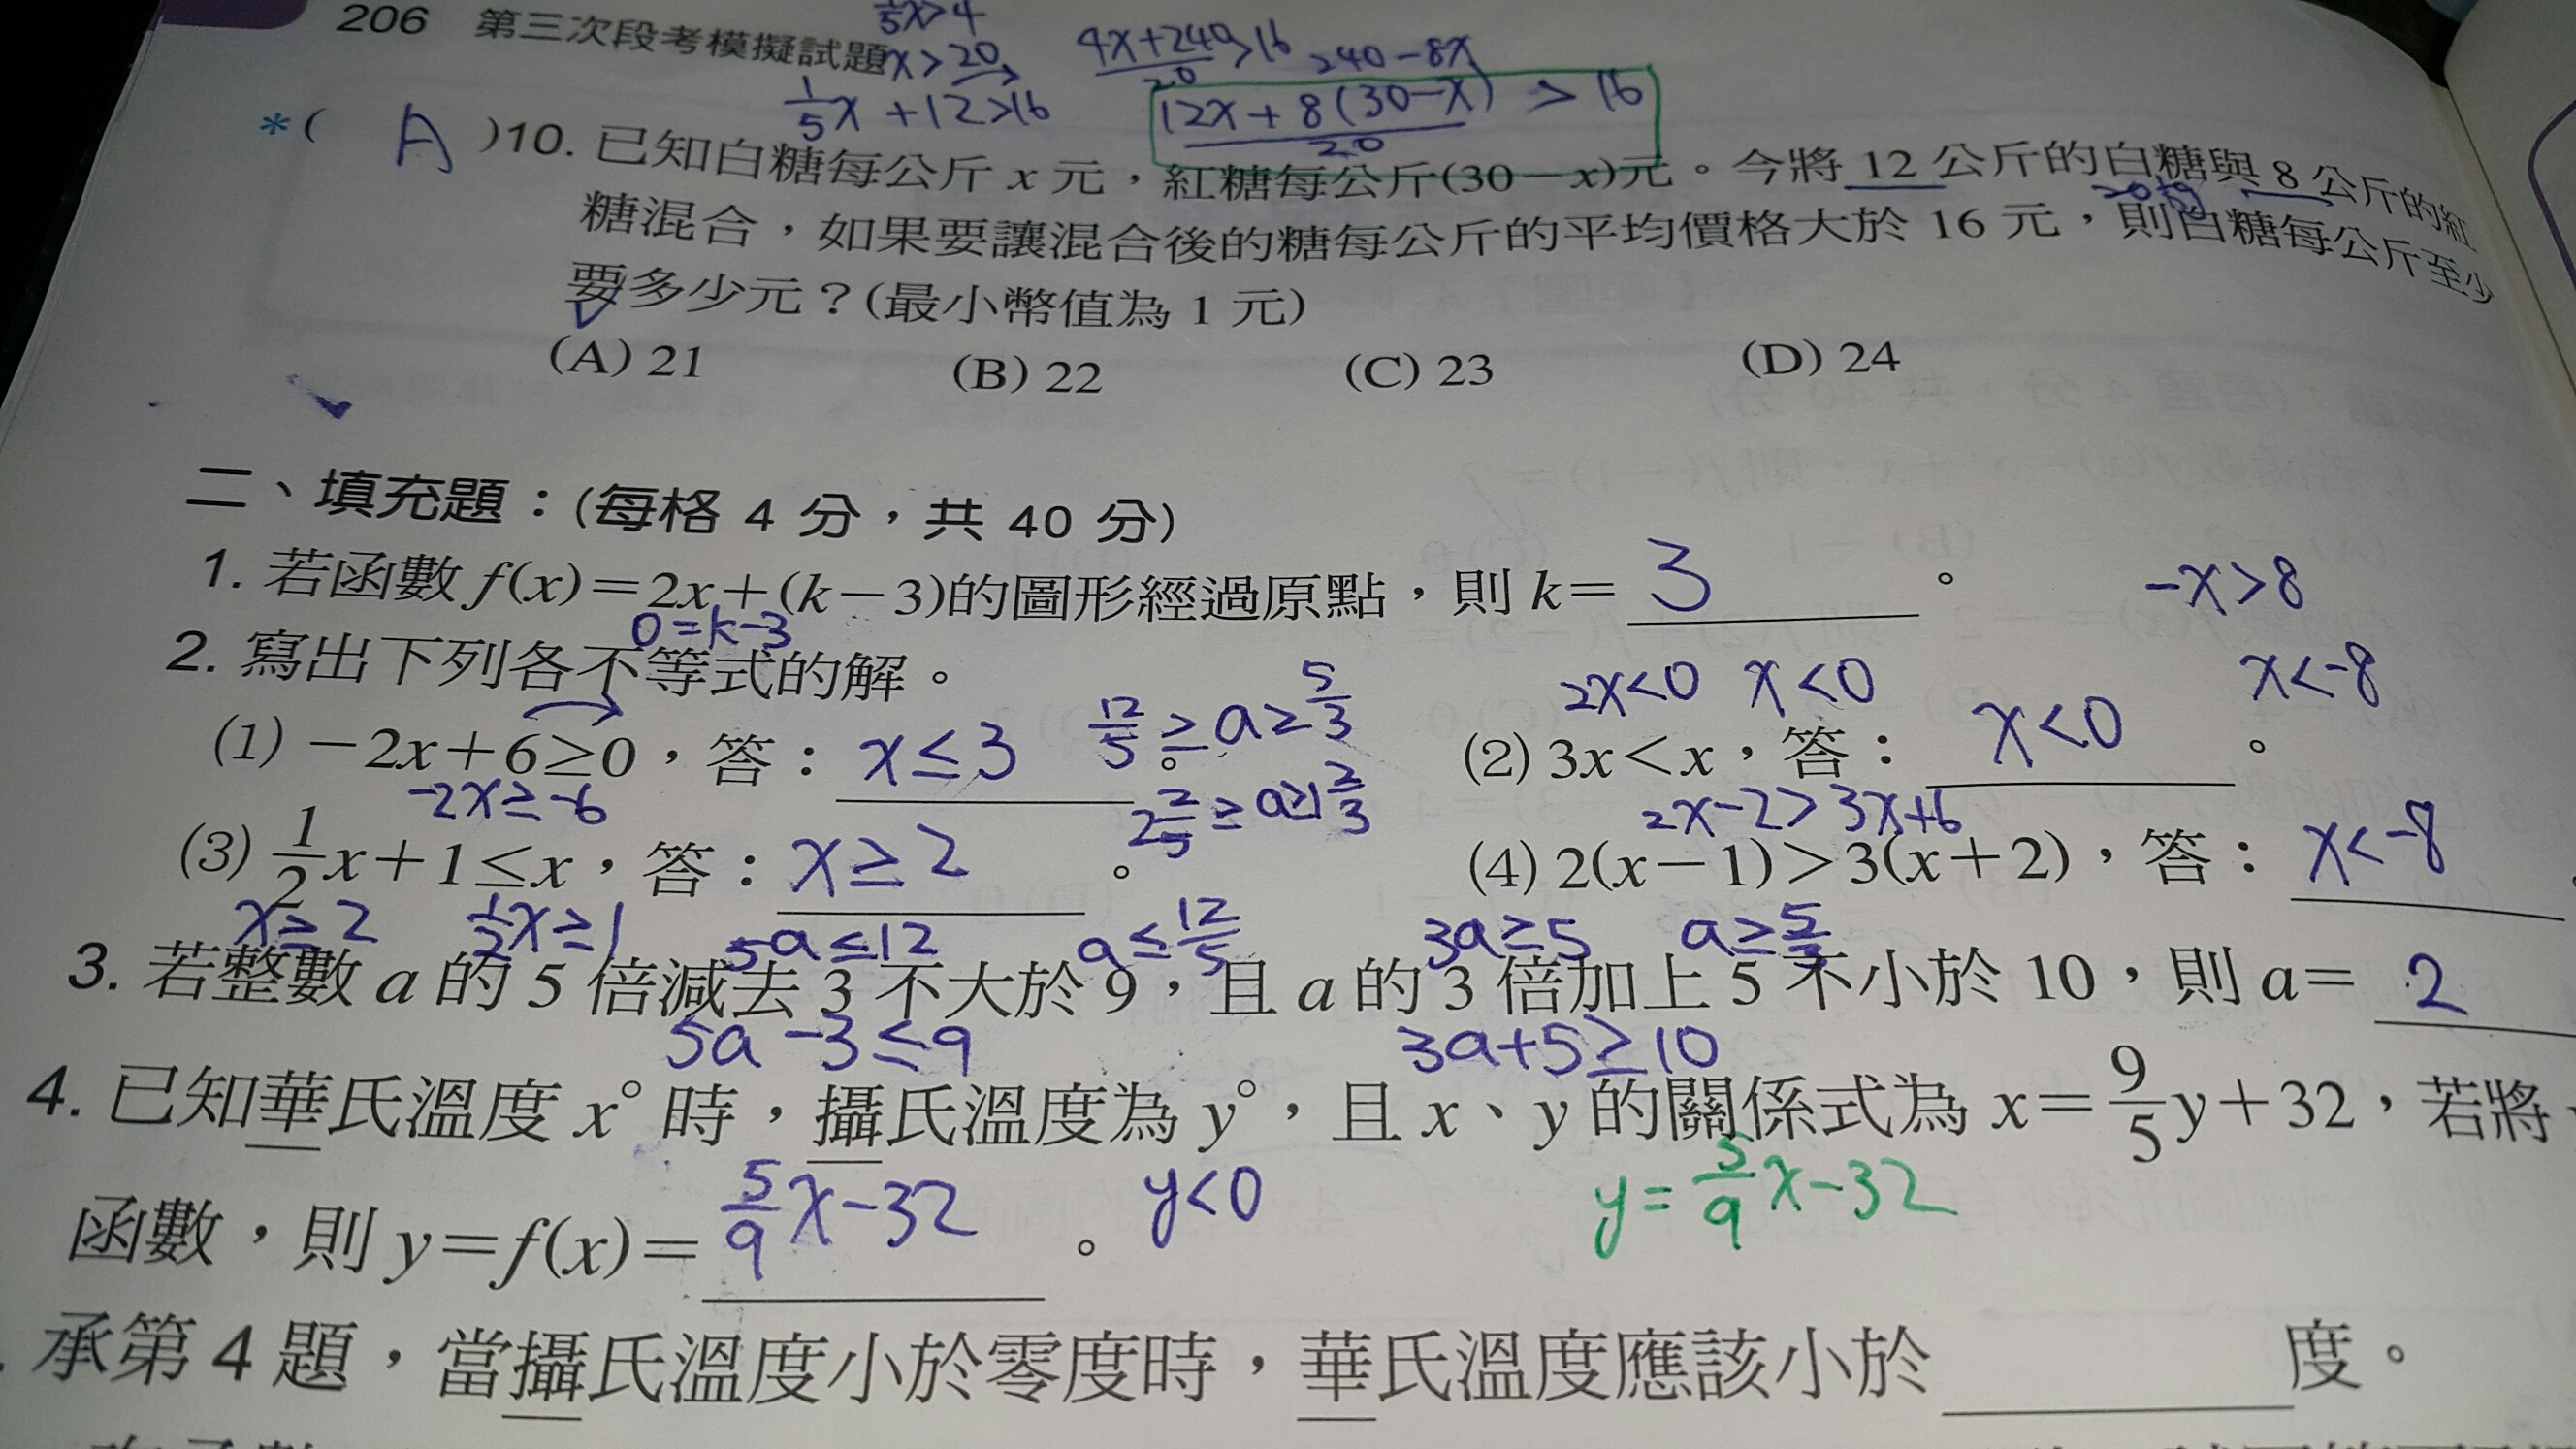 206 第三次段考模擬試題
1/5x>4
x>20
1/5x+12>16
4x+240/20>16
240-8x
12x+8(30-x)/20 > 16
*( A )10. 已知白糖每公斤 x 元，紅糖每公斤(30-x)元。今將 12 公斤的白糖與 8 公斤的紅
20kg
糖混合，如果要讓混合後的糖每公斤的平均價格大於 16 元，則白糖每公斤至少
要多少元？(最小幣值為 1 元)
(A) 21 (B) 22 (C) 23 (D) 24
二、填充題：(每格 4 分，共 40 分)
1. 若函數 f(x)=2x+(k-3)的圖形經過原點，則 k= 3 。
0=k-3
-x>8
x<-8
2. 寫出下列各不等式的解。
12/5≥a≥5/3
2x<0 x<0
(1) -2x+6≥0，答： x≤3 。 (2) 3x<x，答： x<0 。
-2x≥-6
2 2/5≥a≥1 2/3
2x-2>3x+6
(3) 1/2x+1≤x，答： x≥2 。 (4) 2(x-1)>3(x+2)，答： x<-8
x≥2 1/2x≥1
5a≤12 a≤12/5 3a≥5 a≥5/3
3. 若整數 a 的 5 倍減去 3 不大於 9，且 a 的 3 倍加上 5 不小於 10，則 a= 2
5a-3≤9 3a+5≥10
4. 已知華氏溫度 x° 時，攝氏溫度為 y°，且 x、y 的關係式為 x=9/5y+32，若將
函數，則 y=f(x)= 5/9x-32 。 y<0
y=5/9x-32
承第 4 題，當攝氏溫度小於零度時，華氏溫度應該小於 度。